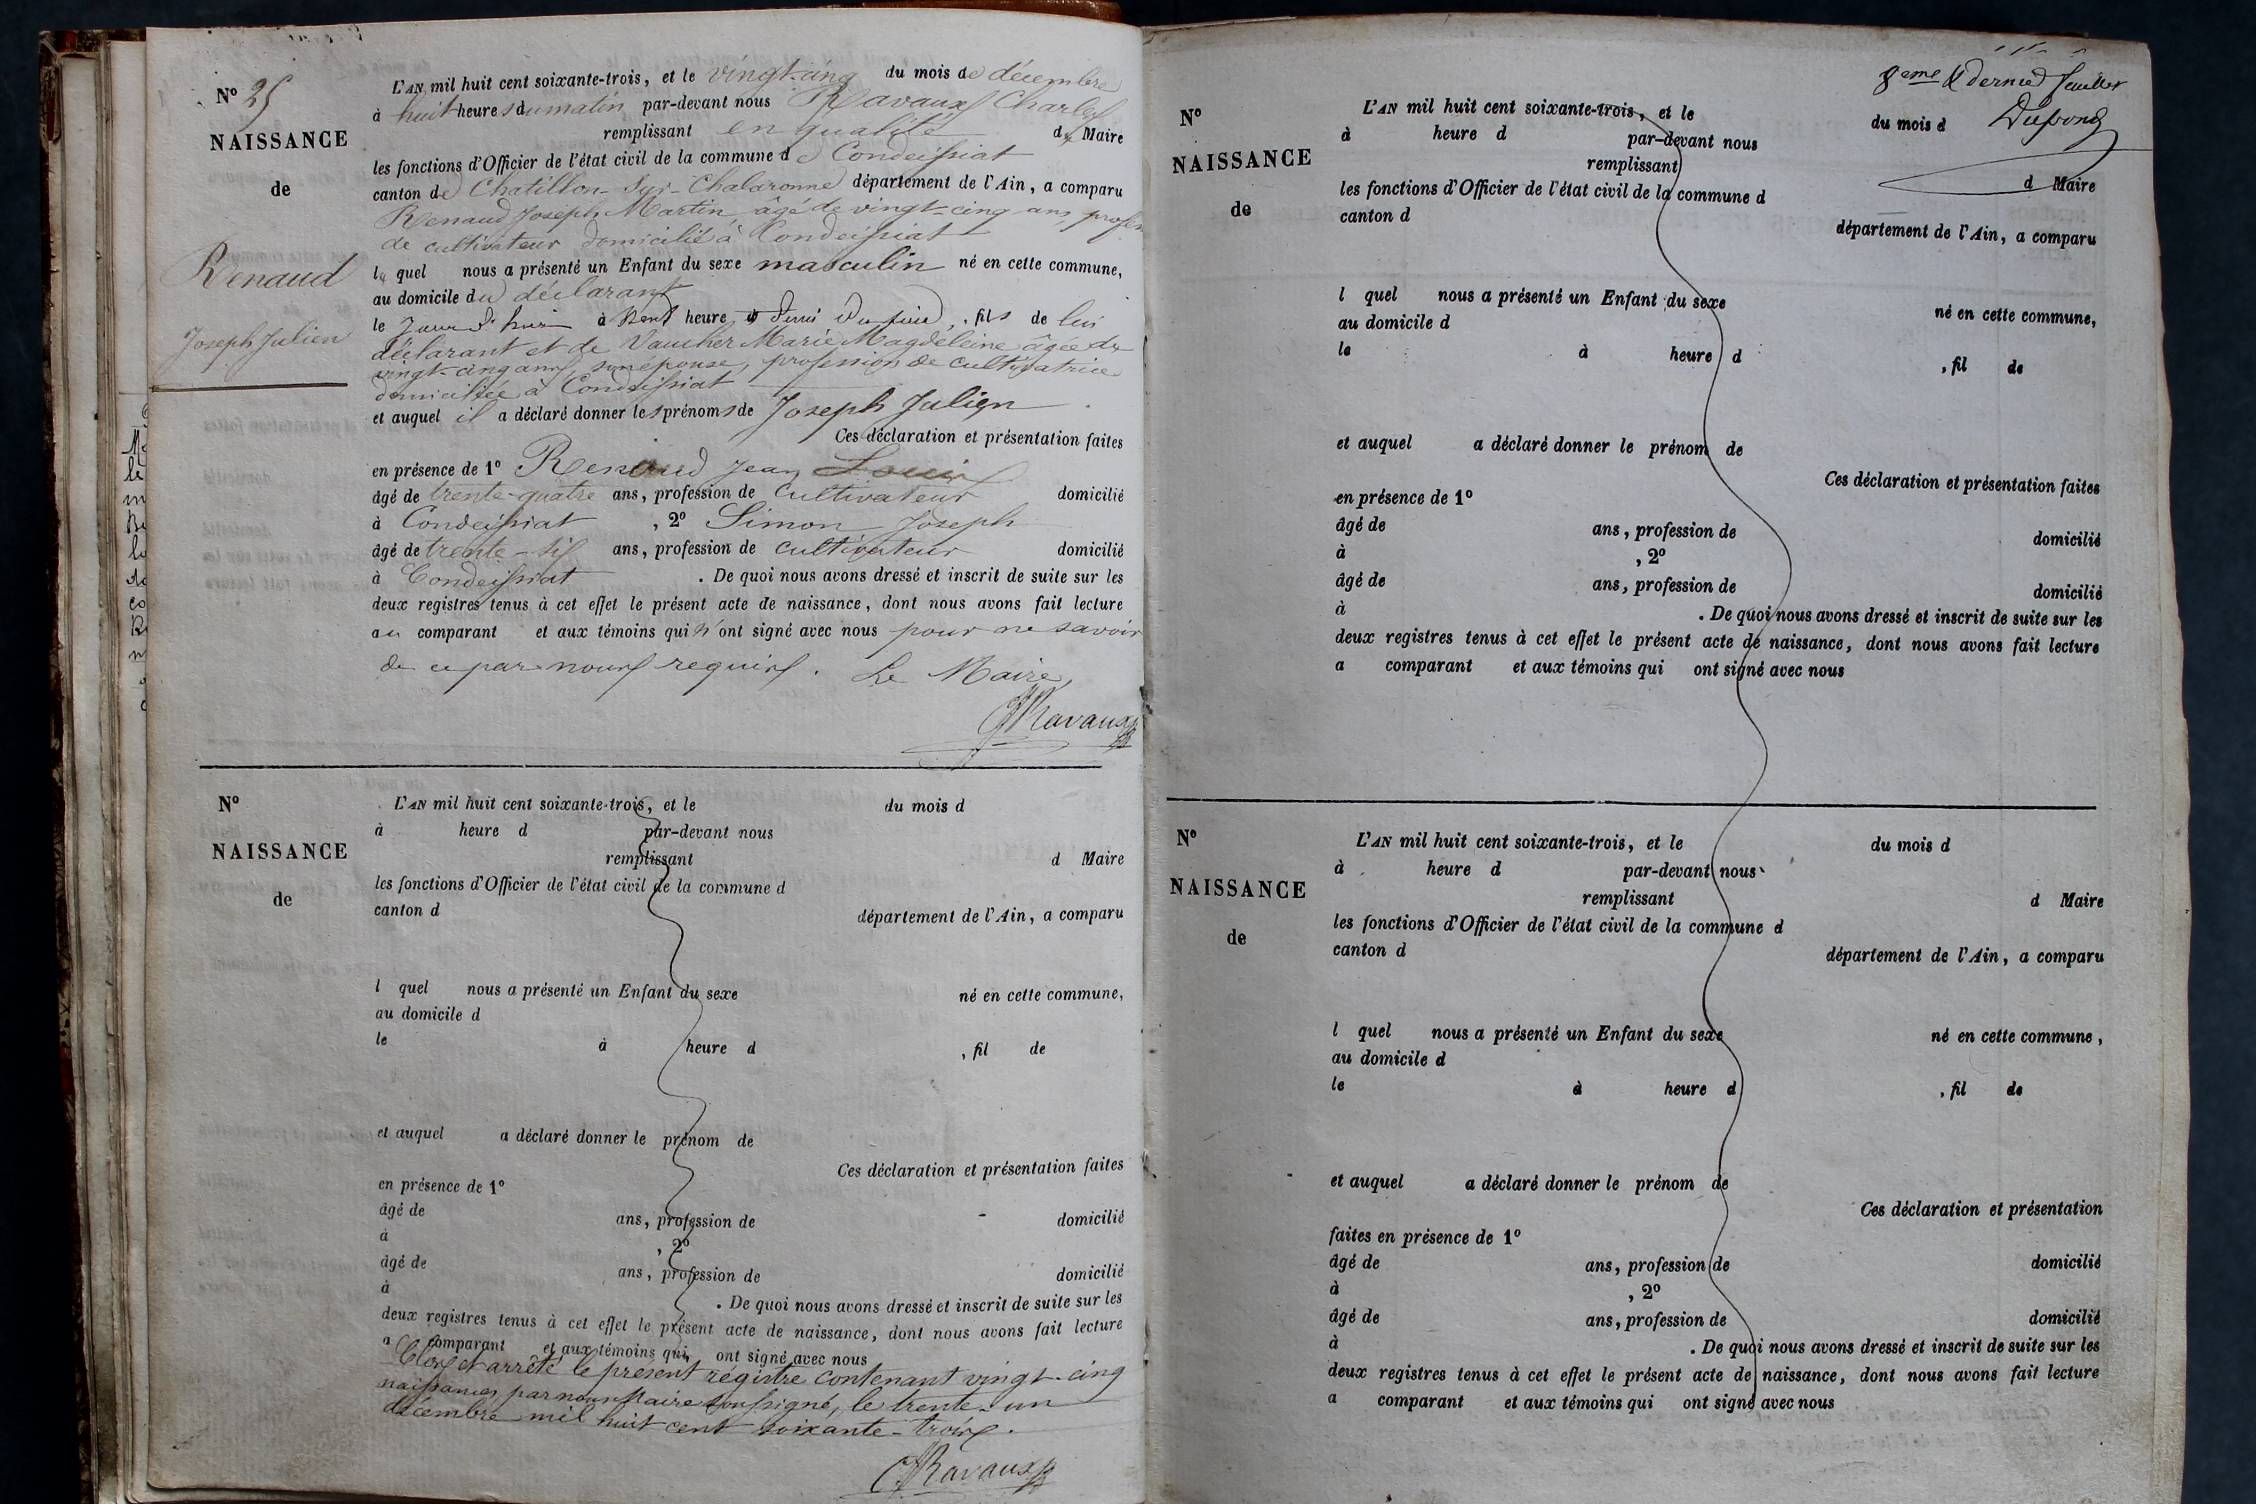 N° 25
NAISSANCE
de
Renaud
Joseph Julien
L'AN mil huit cent soixante-trois, et le vingt-cinq du mois de décembre
à huit heures du matin par-devant nous Ravaux Charles
remplissant en qualité de Maire
les fonctions d'Officier de l'état civil de la commune de Condeissiat
canton de Chatillon-sur-Chalaronne département de l'Ain, a comparu
Renaud Joseph Martin, âgé de vingt-cinq ans profession
de cultivateur domicilié à Condeissiat
lequel nous a présenté un Enfant du sexe masculin né en cette commune,
au domicile du déclarant
le Jour d'hier à heure et demi du , fils de lui
déclarant et de Vaucher Marie Magdeleine âgée de
vingt-cinq ans, son épouse, profession de cultivatrice
domiciliée à Condeissiat
et auquel il a déclaré donner les prénoms de Joseph Julien
Ces déclaration et présentation faites
en présence de 1° Renaud Jean Louis
âgé de trente-quatre ans, profession de cultivateur domicilié
à Condeissiat , 2° Simon Joseph
âgé de trente-six ans, profession de cultivateur domicilié
à Condeissiat . De quoi nous avons dressé et inscrit de suite sur les
deux registres tenus à cet effet le présent acte de naissance, dont nous avons fait lecture
au comparant et aux témoins qui n'ont signé avec nous pour ne savoir
de ce par nous requis. Le Maire,
Ravaux
N°
NAISSANCE
de
L'AN mil huit cent soixante-trois, et le du mois d
à heure d par-devant nous
remplissant d Maire
les fonctions d'Officier de l'état civil de la commune d
canton d département de l'Ain, a comparu
l quel nous a présenté un Enfant du sexe né en cette commune,
au domicile d
le à heure d , fil de
et auquel a déclaré donner le prénom de
Ces déclaration et présentation faites
en présence de 1°
âgé de ans, profession de domicilié
à , 2°
âgé de ans, profession de domicilié
à . De quoi nous avons dressé et inscrit de suite sur les
deux registres tenus à cet effet le présent acte de naissance, dont nous avons fait lecture
a comparant et aux témoins qui ont signé avec nous
Clos et arrêté le présent régistre contenant vingt-cinq
naissances par nous Maire soussigné, le trente-un
décembre mil huit cent soixante-trois.
Ravaux
8eme & dernier feuillet
Dupong
N°
NAISSANCE
de
L'AN mil huit cent soixante-trois, et le du mois d
à heure d par-devant nous
remplissant d Maire
les fonctions d'Officier de l'état civil de la commune d
canton d département de l'Ain, a comparu
l quel nous a présenté un Enfant du sexe né en cette commune,
au domicile d
le à heure d , fil de
et auquel a déclaré donner le prénom de
Ces déclaration et présentation faites
en présence de 1°
âgé de ans, profession de domicilié
à , 2°
âgé de ans, profession de domicilié
à . De quoi nous avons dressé et inscrit de suite sur les
deux registres tenus à cet effet le présent acte de naissance, dont nous avons fait lecture
a comparant et aux témoins qui ont signé avec nous
N°
NAISSANCE
de
L'AN mil huit cent soixante-trois, et le du mois d
à heure d par-devant nous
remplissant d Maire
les fonctions d'Officier de l'état civil de la commune d
canton d département de l'Ain, a comparu
l quel nous a présenté un Enfant du sexe né en cette commune,
au domicile d
le à heure d , fil de
et auquel a déclaré donner le prénom de
Ces déclaration et présentation
faites en présence de 1°
âgé de ans, profession de domicilié
à , 2°
âgé de ans, profession de domicilié
à . De quoi nous avons dressé et inscrit de suite sur les
deux registres tenus à cet effet le présent acte de naissance, dont nous avons fait lecture
a comparant et aux témoins qui ont signé avec nous